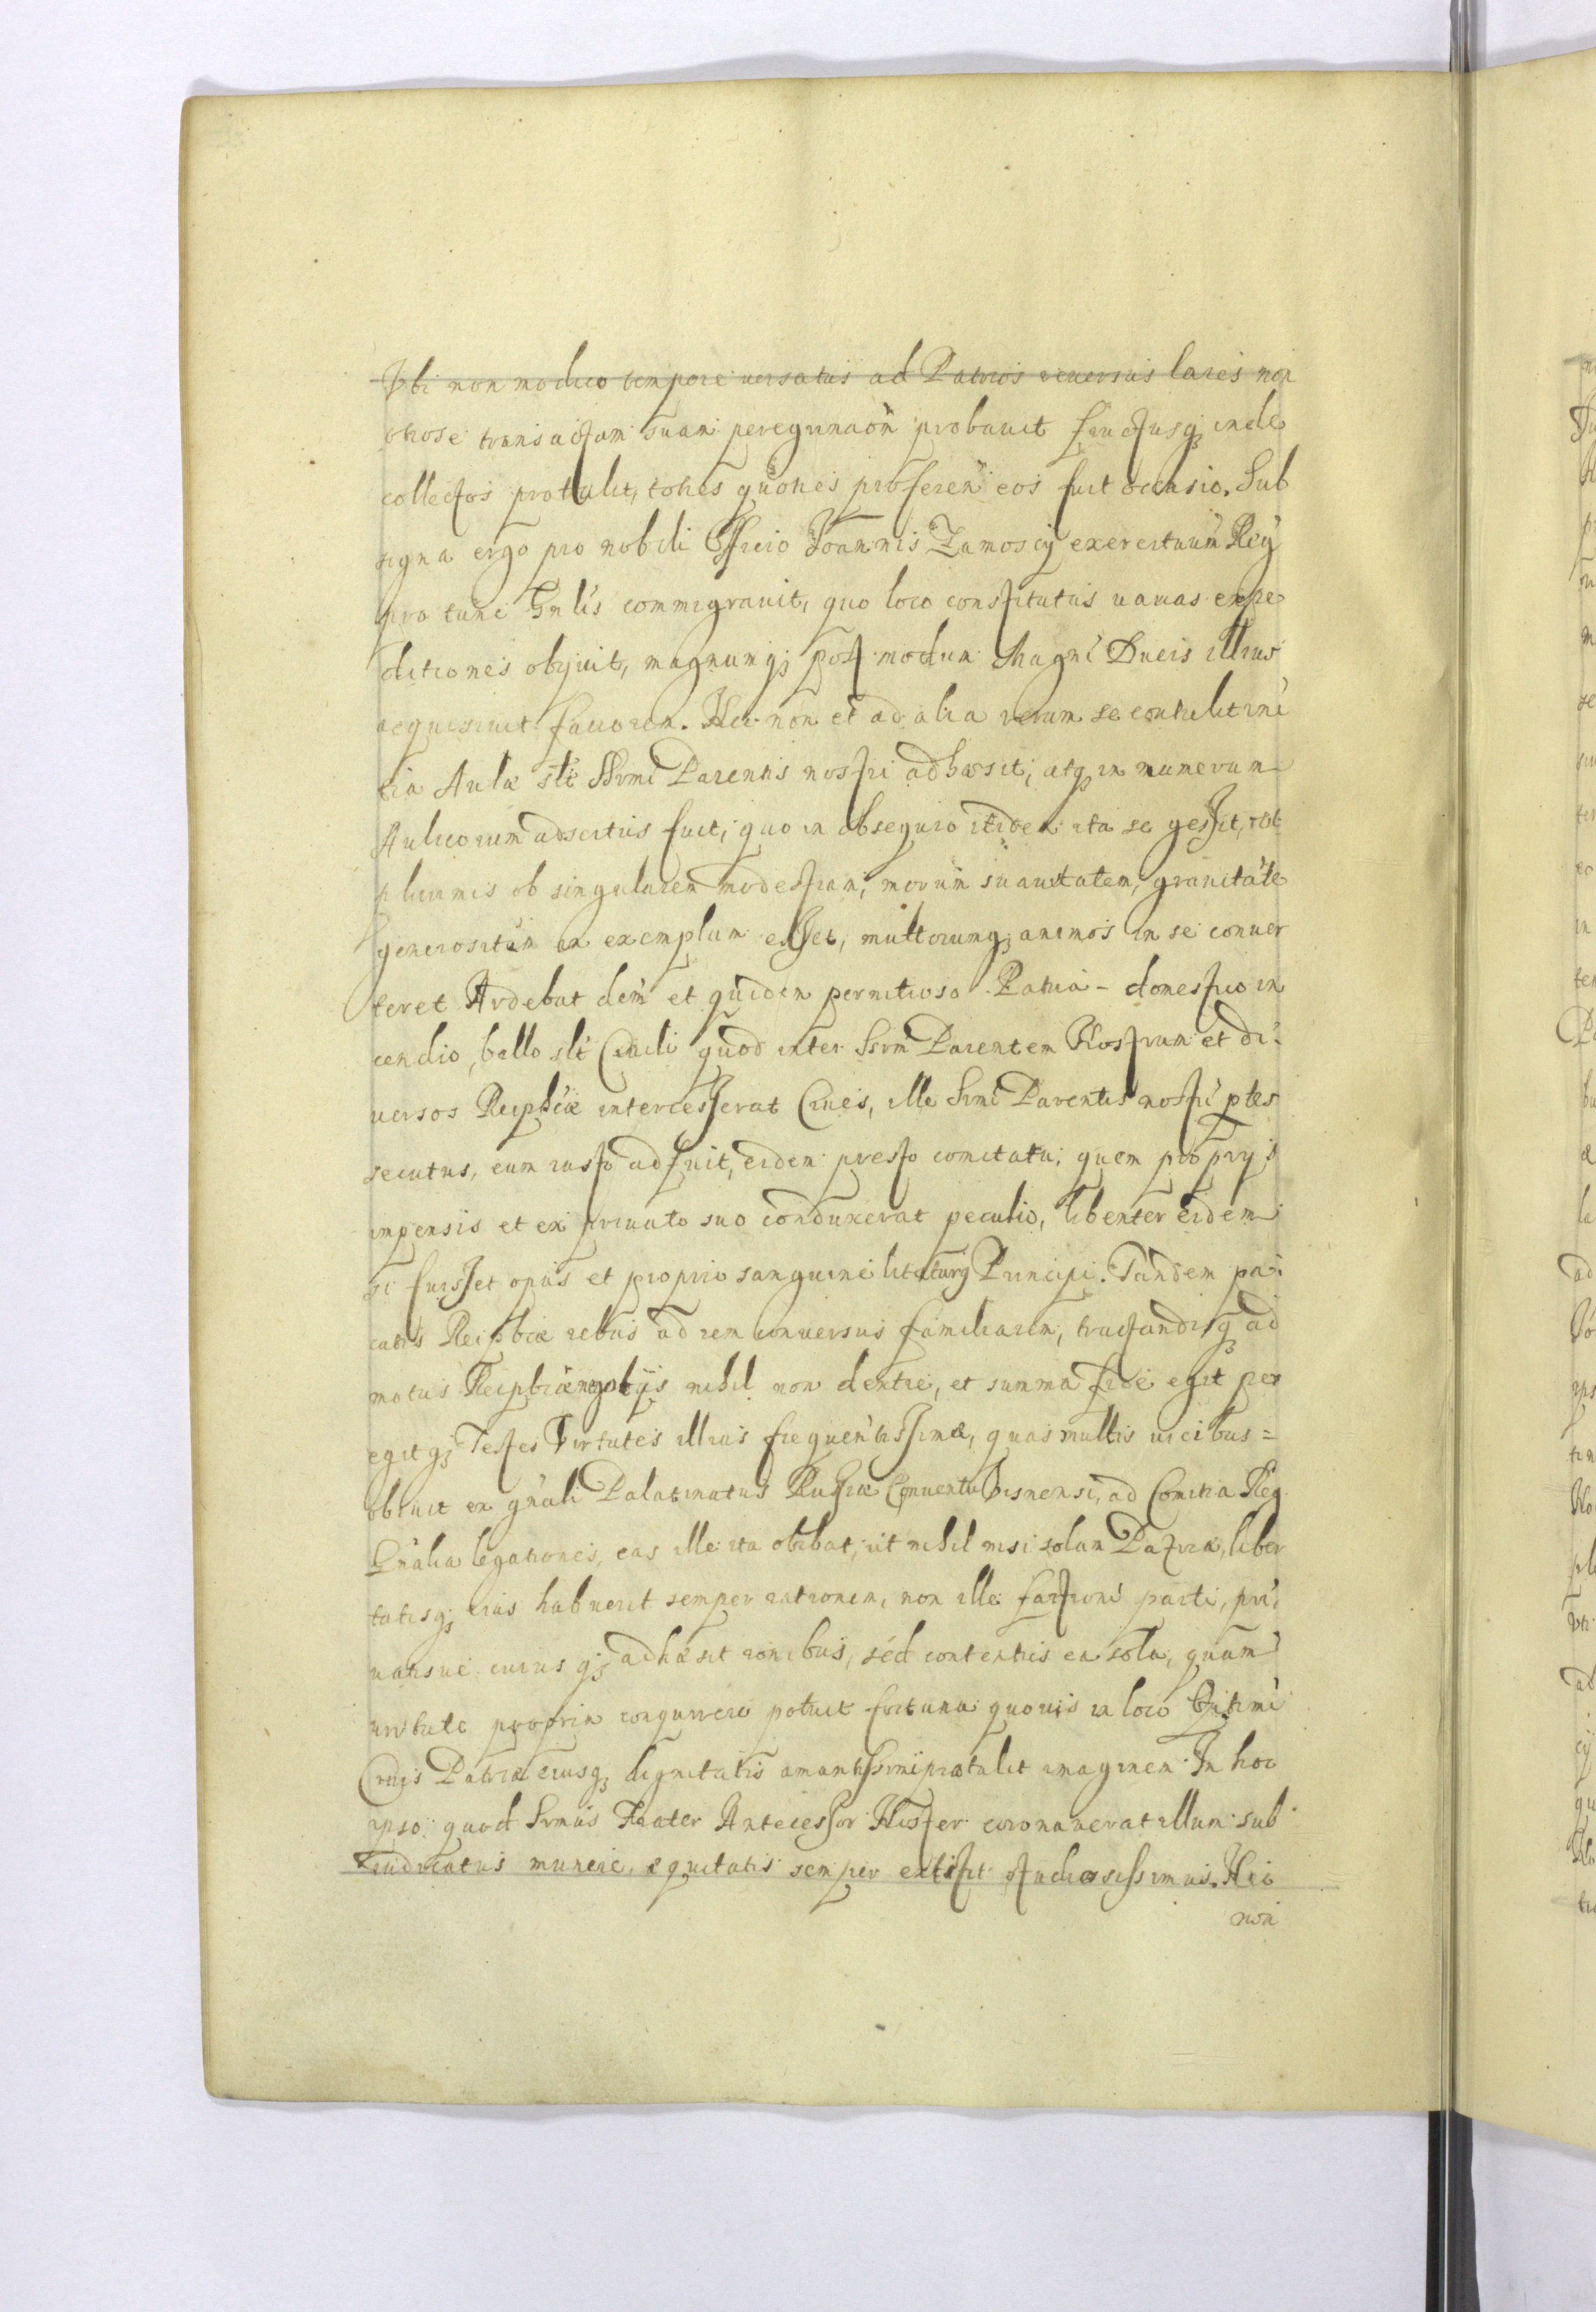 Vbi non modico tempore uersatus ad Patrios reuersus lares non
otiose transactam suam peregrinaõn probauit fructusq; inde
collectos protulit, toties quoties proferen eos fuit occasio. Sub
signa ergo pro nobili Officio Joannis Zamoscij exercituum Reg
pro tunc Gnlis commigrauit, quo loco constitutus uarias expe
ditiones obijuit, magnumq; post modum Magni Ducis illius
acquisiuit fauorem. Nec non et ad alia rerum se contulit ini
tia Aulæ slt Srmi Parentis nostri adhæsit, atq; in numerum
Aulicorum adscitus fuit, quo in obsequio itidem ita se gessit, ut
plurimis ob singularem modestiam, morum suauitatem, grauitate
generositãm in exemplum esset, multorumq; animos in se conuer
teret Ardebat dem et quidem pernitioso Patria - domestico in
cendio, bello slt Ciuili quod inter Srm Parentem Nostrum et di
uersos Reipbcæ intercesserat Ciues, ille Srmi Parentis nostri ptes
secutus, eum iusto adfuit, eidem presto comitatu, quem proprijs
impensis et ex priuato suo conduxerat peculio, libenter eidem
si fuisset opus et proprio sanguine litaturq Principi. Tandem pa
catis Reipbcæ rebus ad rem conuersus familiarem, tractandisq; ad
motus Reipbcæ negotijs nihil non dextre, et summa fide egit per
egitq; Testes Virtutes illius frequentissimæ, quas multis uicibus =
obiuit ex gnali Palatinatus Russiæ Conuentu Visnensi, ad Comitia Reg
Gnalia legationes, eas ille ita obibat, ut nihil nisi solam Patriæ, liber
tatisq; eius habuerit semper rationem, non ille factioni parti, pri
uatisue cuius q; adhæsit ronibus, sed contentus ea sola, quam
uirtute propria conquirere potuit fortuna quouis in loco Optimi
Ciuis Patriæ eiusq; dignitatis amantissimi prætulit imaginem. In hoc
ipso quod Srmus Frater Antecessor Noster coronauerat illum sub
Iudicatus munere, æquitatis semper extitit studiosissimus. Nec
non